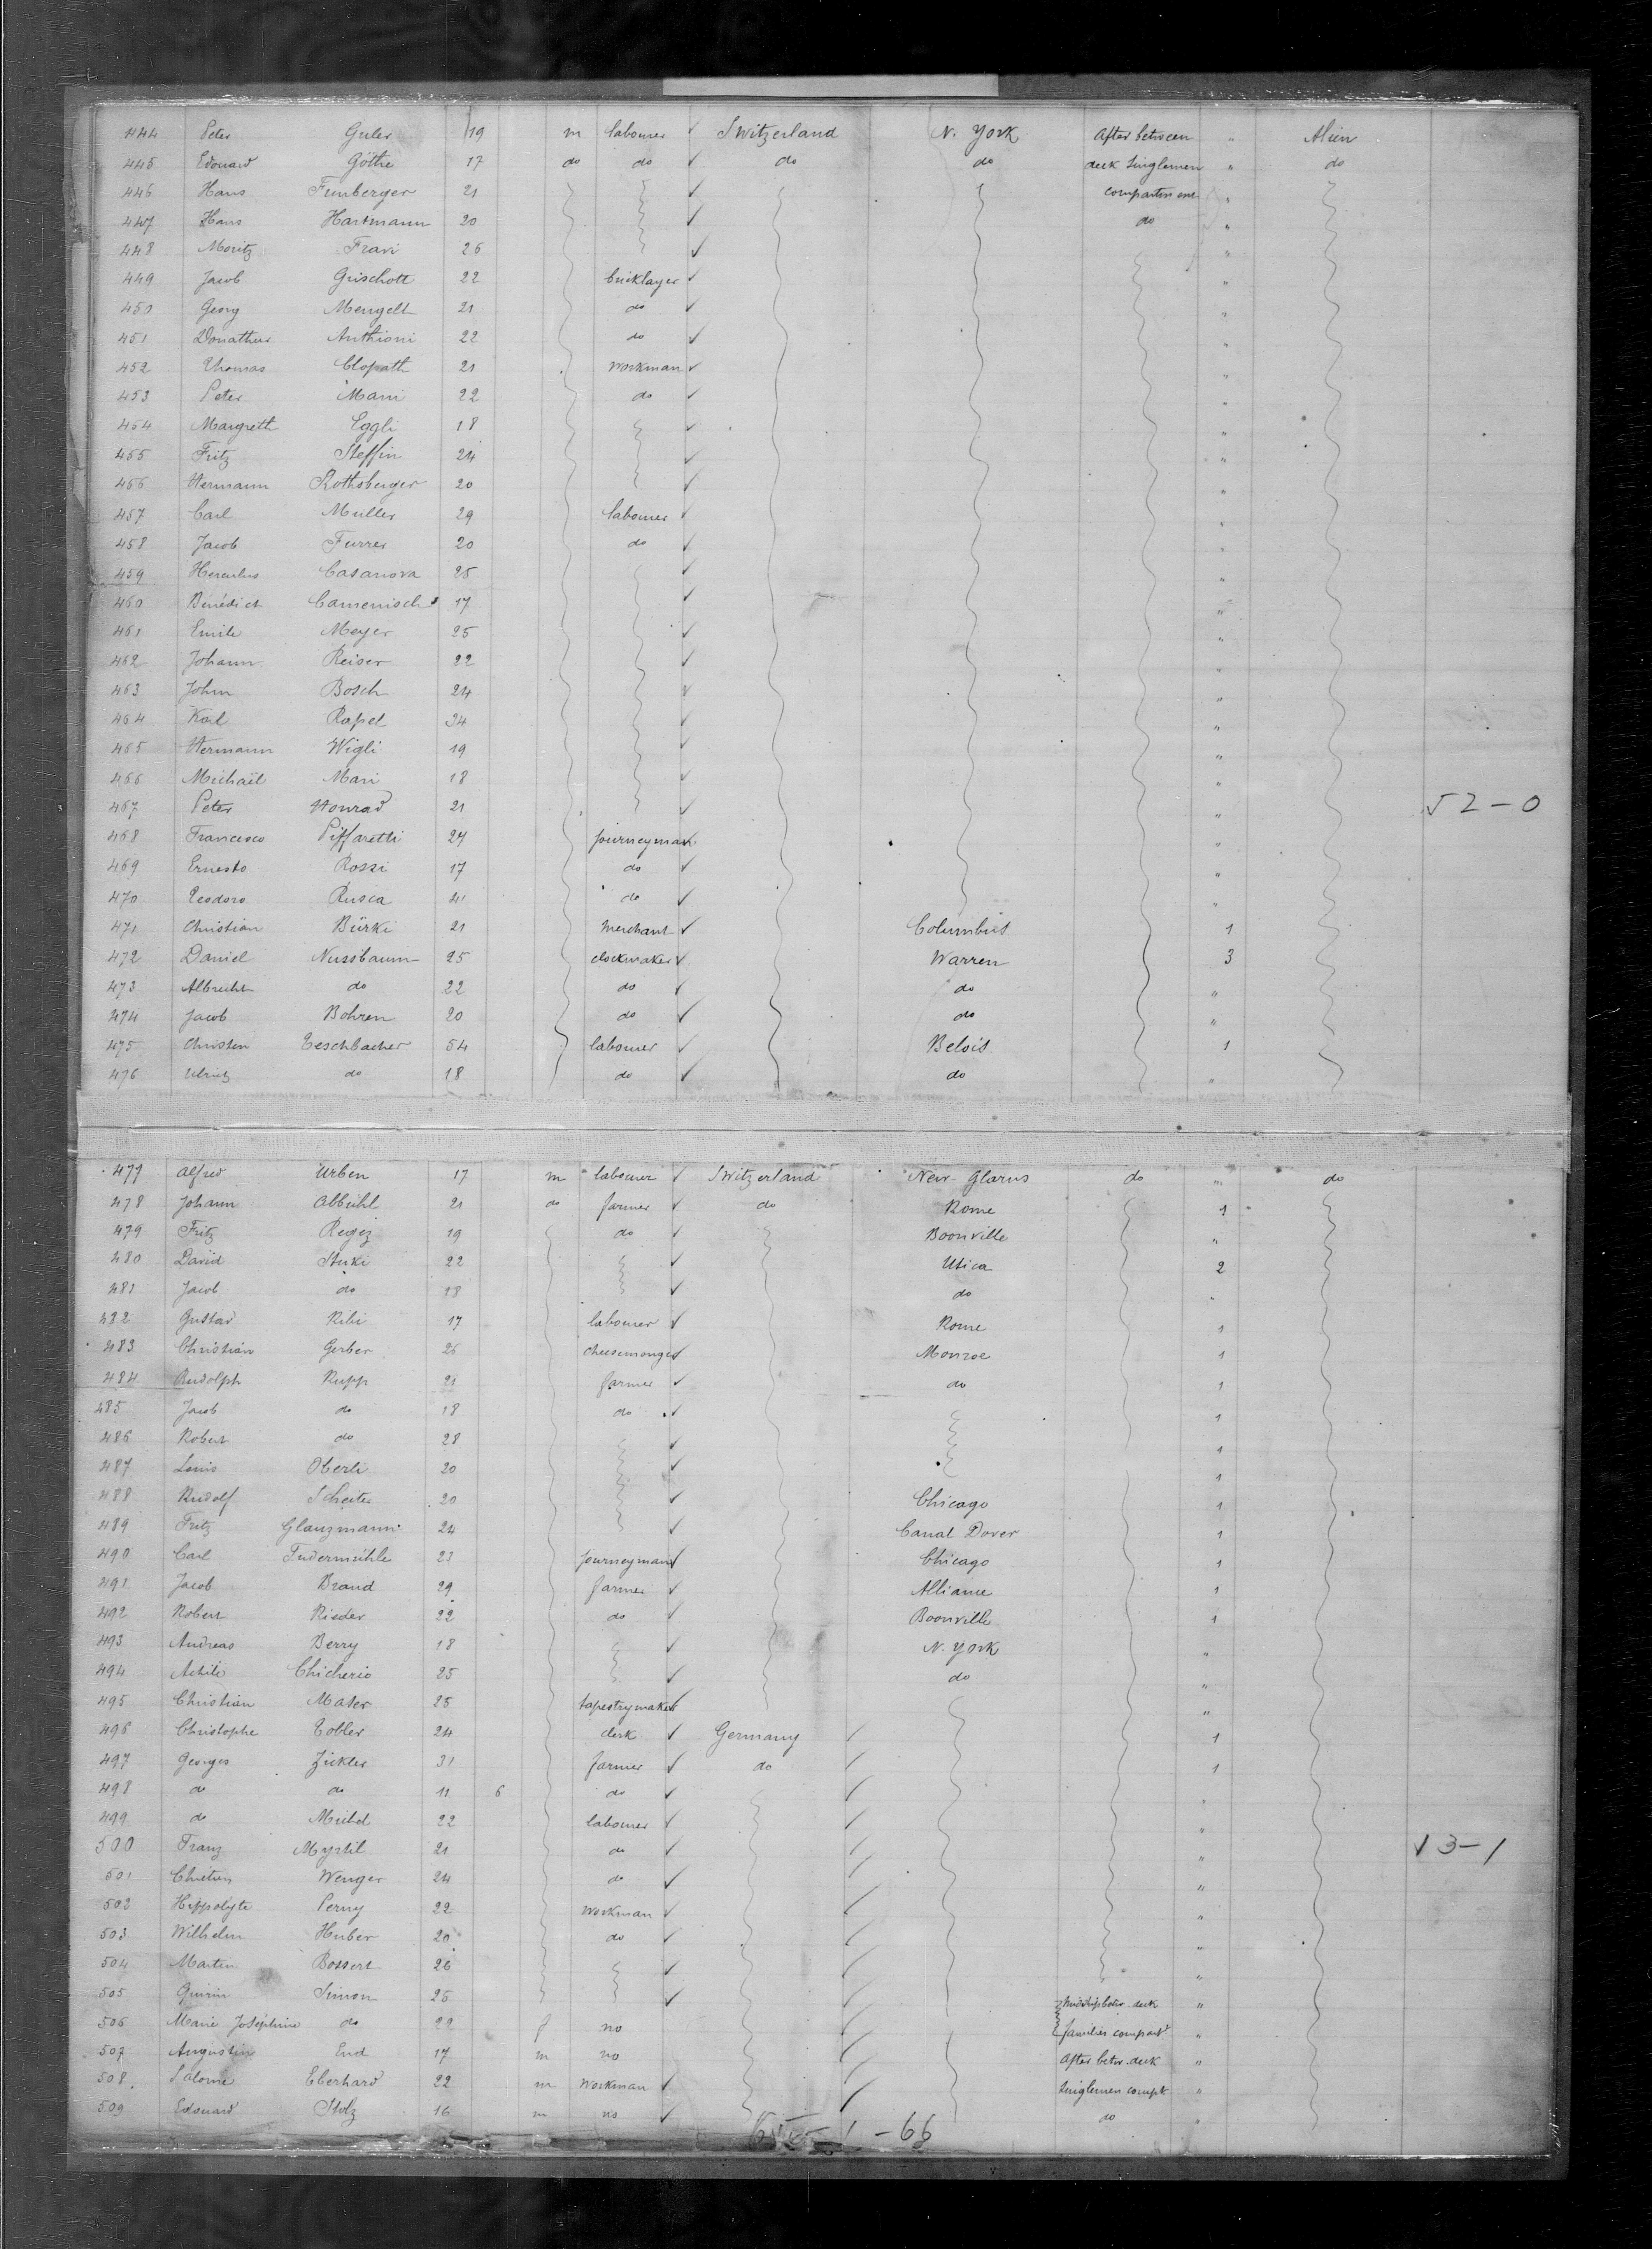 444 Peter Guler 19 m labourer ✓ Switzerland N. York After between " Alien
445 Edouard Göthe 17 do do ✓ do do deck singlemen " do
446 Hans Funberger 21 ✓ compartm "
447 Hans Hartmann 20 ✓ do "
448 Moritz Fravi 26 ✓ "
449 Jacob Grischott 22 bricklayer ✓ "
450 Georg Mengelt 21 do ✓ "
451 Donathus Anthioni 22 do ✓ "
452 Thomas Clopath 21 workman ✓ "
453 Peter Mani 22 do ✓ "
454 Margreth Eggli 18 ✓ "
455 Fritz Steffin 24 ✓ "
456 Hermann Rothsberger 20 ✓ "
457 Carl Muller 29 labourer ✓ "
458 Jacob Furrer 20 do ✓ "
459 Hercules Casanova 25 ✓ "
460 Bénédict Camenisch 17 ✓ "
461 Emile Meyer 25 ✓ "
462 Johann Reiser 22 ✓ "
463 John Bosch 24 ✓ "
464 Karl Rapet 34 ✓ "
465 Hermann Wigli 19 ✓ "
466 Michaël Mani 18 ✓ "
467 Peter Honrad 21 ✓ " 52-0
468 Francesco Piffaretti 27 journeyman ✓ "
469 Ernesto Rossi 17 do ✓ "
470 Teodoro Rusca 41 do ✓ "
471 Christian Bürki 21 merchant ✓ Columbus 1
472 Daniel Nussbaum 25 clockmaker ✓ Warren 3
473 Albrecht do 22 do ✓ do "
474 Jacob Bohren 20 do ✓ do "
475 Christen Eeschbacher 54 labourer ✓ Beloit 1
476 Ulrich do 18 do ✓ do "
477 Alfred Urben 17 m labourer ✓ Switzerland New-Glarus do " do
478 Johann Abbühl 21 do farmer ✓ do Rome 1
479 Fritz Regez 19 do ✓ Boonville "
480 David Stuki 22 ✓ Utica 2
481 Jacob do 18 ✓ do
482 Gustav Ribi 17 labourer ✓ Rome 1
483 Christian Gerber 26 cheesemonger ✓ Monroe 1
484 Rudolph Rupp 21 farmer ✓ do 1
485 Jacob do 18 do ✓ 1
486 Robert do 28 ✓ 1
487 Louis Oberli 20 ✓ 1
488 Rudolf 20 ✓ Chicago 1
489 Fritz Glauzmann 24 ✓ Canal Dover 1
490 Carl Fudermühle 23 journeyman ✓ Chicago 1
491 Jacob Brand 29 farmer ✓ Alliance 1
492 Robert Rieder 22 do ✓ Boonville 1
493 Andreas Berry 18 ✓ N. York "
494 Achile Chicherio 25 ✓ do "
495 Christian Mater 25 tapestrymaker ✓ "
496 Christophe Tobler 24 clerk ✓ Germany 1
497 Georges Zickler 31 farmer ✓ do 1
498 do do 11 6 do ✓ "
499 do 22 labourer ✓ "
500 Franz Myrtil 21 do ✓ " 13-1
501 Chretien Wenger 24 do ✓ "
502 Hippolyte Perny 22 workman ✓ "
503 Wilhelm Huber 20 do ✓ "
504 Martin Bossert 26 ✓ "
505 Quirin Simon 25 ✓ Midship betw. deck "
506 Marie Joséphine do 22 f no families compart "
507 Augustin End 17 m no After betw. deck "
508 Salome Eberhard 22 m workman ✓ singlemen compt "
509 Edouard Stolz 16 m no ✓ do "
65 - 1 - 66